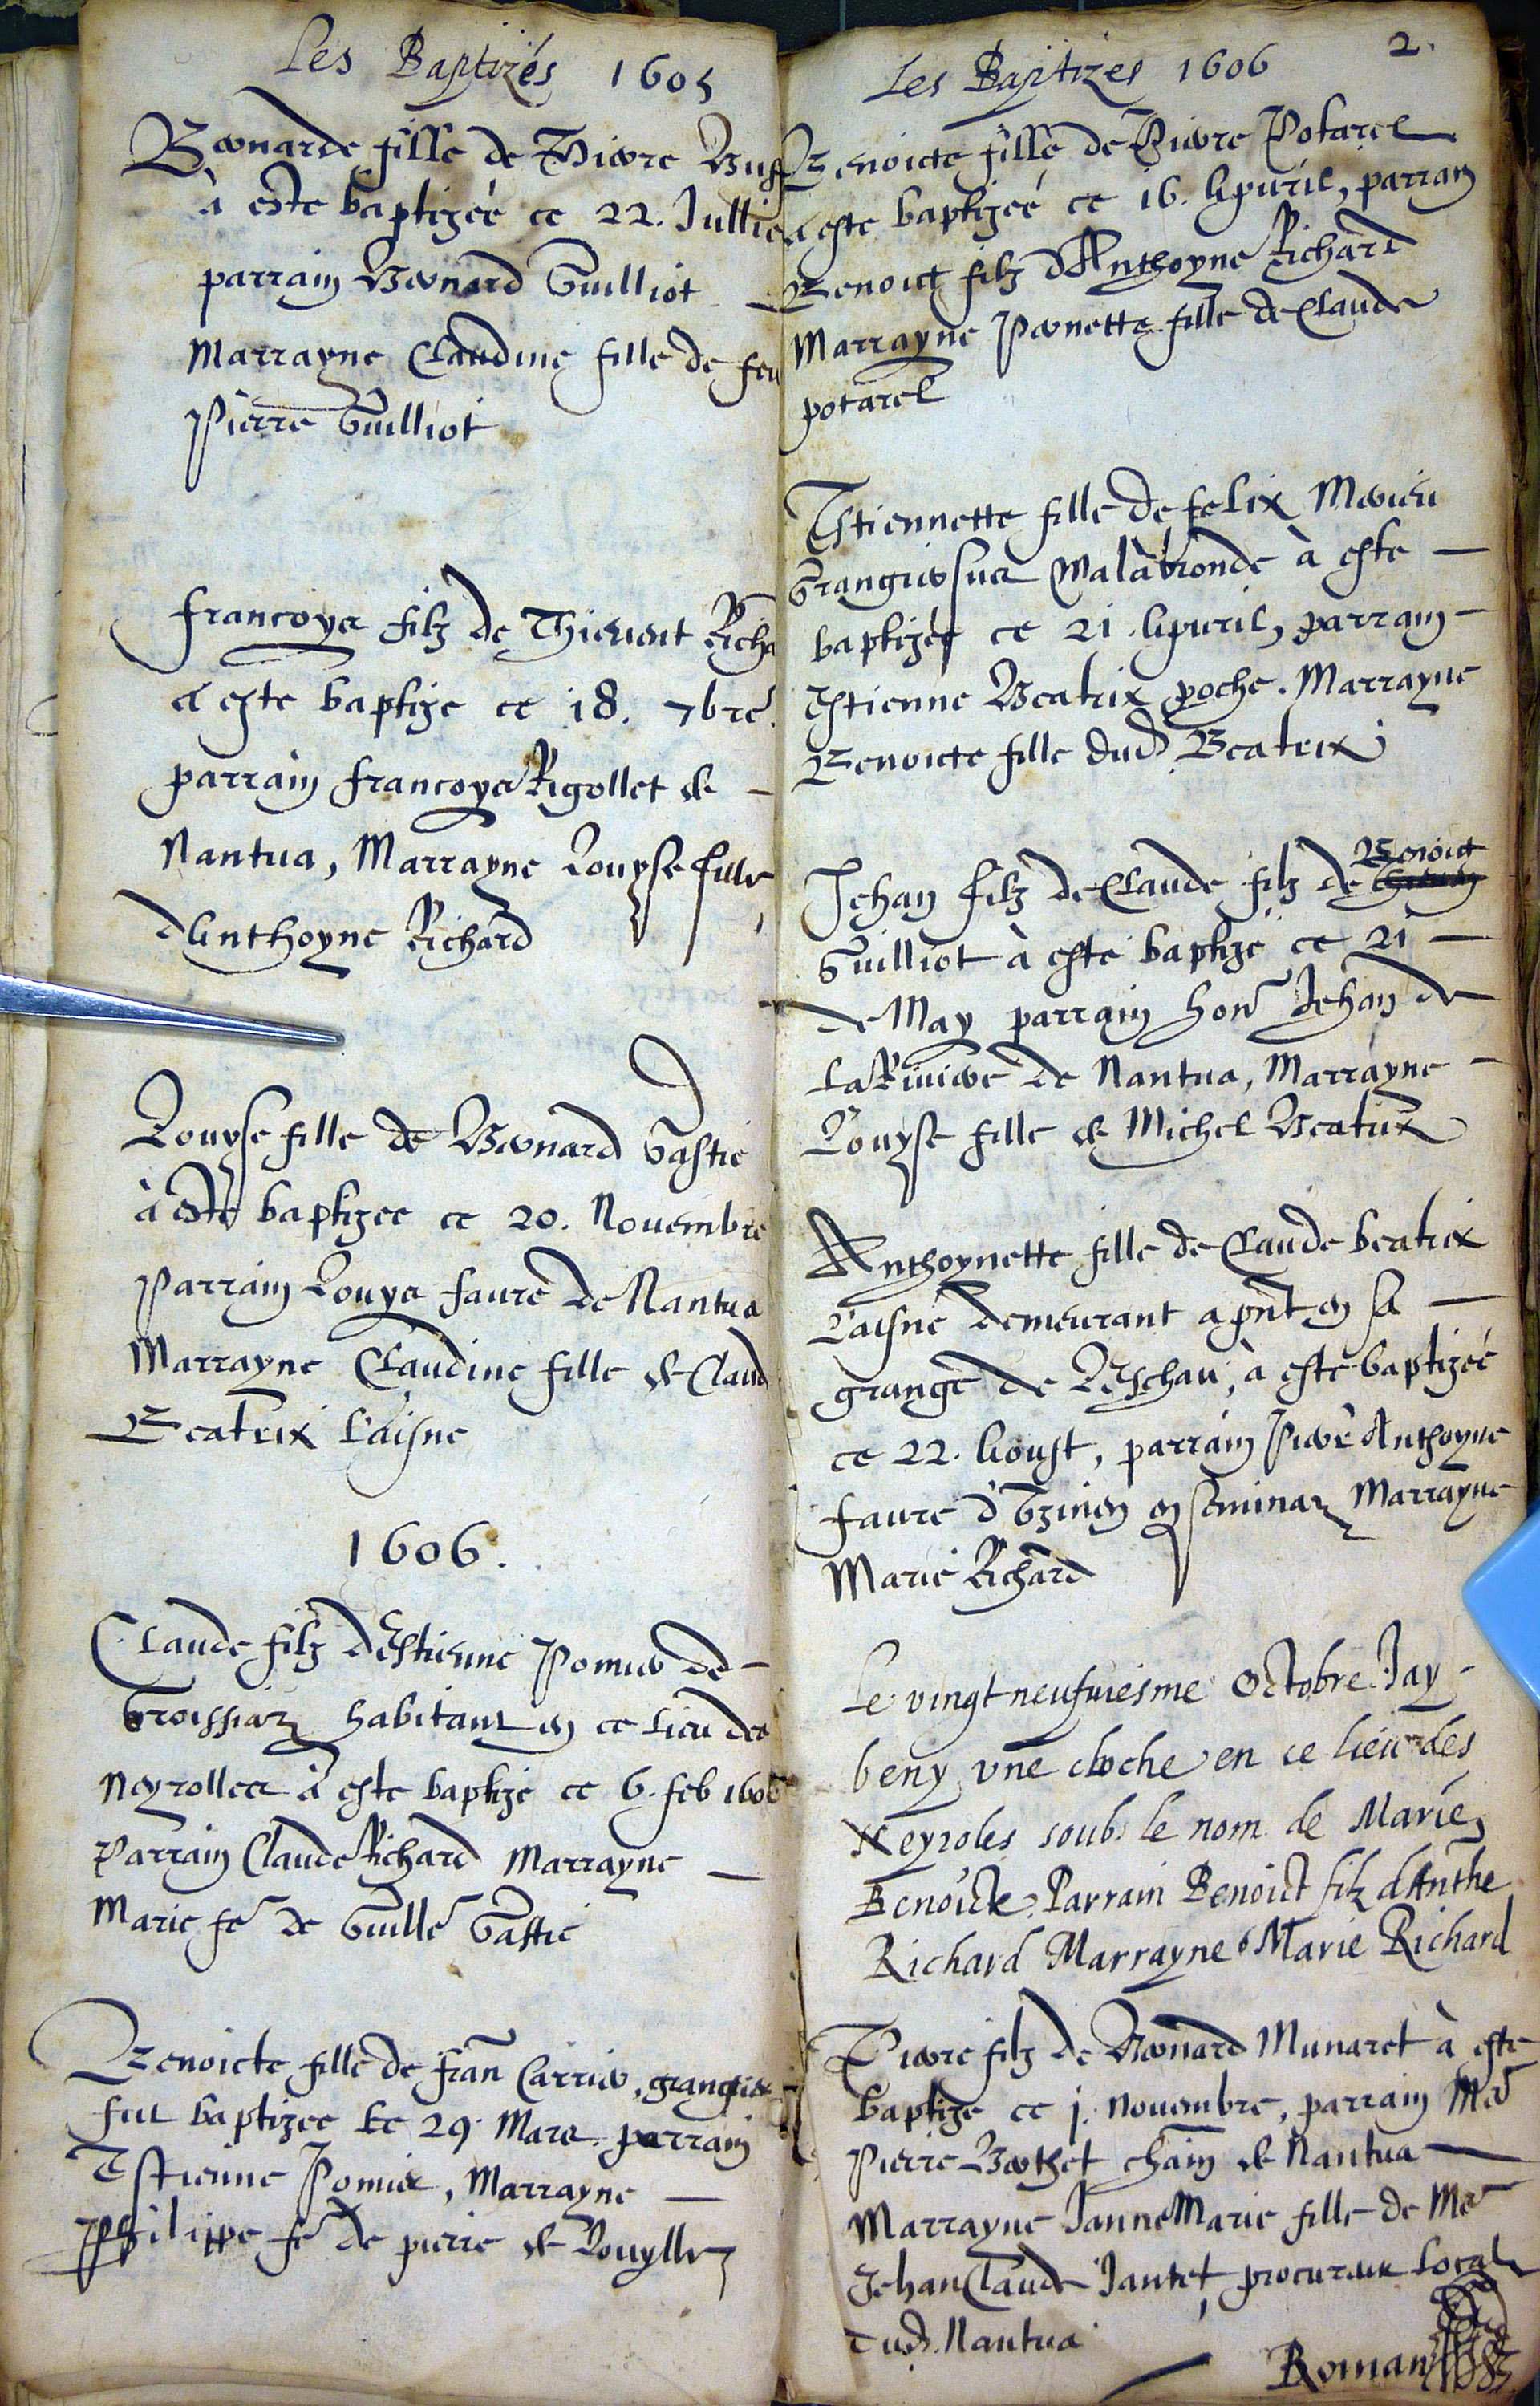 Les Baptizés 1605
Bernarde fille de Pierre
à esté baptizée ce 22. Jullie
parrain Bernard Guilliot
Marrayne Claudine fille de feu
Pierre Guilliot
Francoys filz de Thievent Richa
a esté baptizé ce 18. 7bre.
parrain Francoys Rigollet de
Nantua, Marrayne Louyse fille
d'Anthoyne Richard
Louyse fille de Bernard Gastié
à esté baptizée ce 20. Novembre
Parrain Louys Favre de Nantua
Marrayne Claudine fille de Claud
Beatrix L'aisné
1606.
Claude filz d'Estienne Pomier de
Groissiaz habitant en ce lieu des
Neyrolles à esté baptizé ce 6. feb 1606
Parrain Claude Richard Marrayne
Marie fe de Guille Gastié
Benoicte fille de Fran Carrier, grangier
fut baptizée le 29. Mars. parrain
Estienne Pomier, Marrayne
Philippe fe de pierre de Rouylle
2.
Les Baptizes 1606
Benoicte fille de Pierre Potarel
a esté baptizeé ce 16. Apuril, parrain
Benoict filz d'Anthoyne Richard
Marrayne Pernette fille de Claude
potarel
Estiennette fille de felix Mercier
Grangier sur Malabronde à esté
baptizée ce 21. Apuril, parrain
Estienne Beatrix poche. Marrayne
Benoicte fille dud. Beatrix
Benoict
Jehan filz de Claude filz de
Guilliot à esté baptizé ce 21
de May parrain hon Jehan de
La Riviere de Nantua, Marrayne
Louyse fille de Michel Beatrix
Anthoynette fille de Claude beatrix
L'aisné demeurant a pnt en sa
grange de Leschau, à esté baptizeé
ce 22. Aoust, parrain Pierre Anthoyne
Favre d' en seminar Marrayne
Marie Richard
Le vingt neufuiesme Octobre Jay
beny vne cloche en ce lieu des
Neyroles soubs le nom de Marie,
Benoicte. Parrain Benoict filz d'Anthe
Richard Marrayne Marie Richard
Pierre filz de Bernard Munaret à esté
baptizé ce j. Nouembre, parrain Me
Pierre Berthet chain de Nantua
Marrayne Janne Marie fille de Me
Jehan Claude Jantet, procureur Local
dud. Nantua
Roman